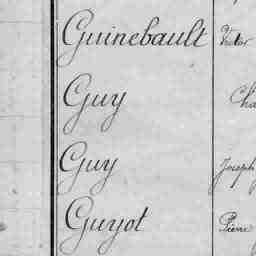 Guinebault Victor
Guy Cha
Guy Joseph
Guyot Pierre